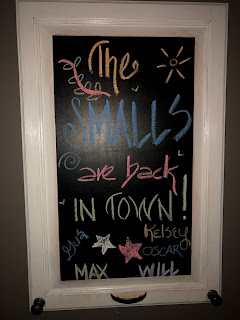 The
SMALLS
are back
IN TOWN!
Kelsey
OSCAR
MAX WILL